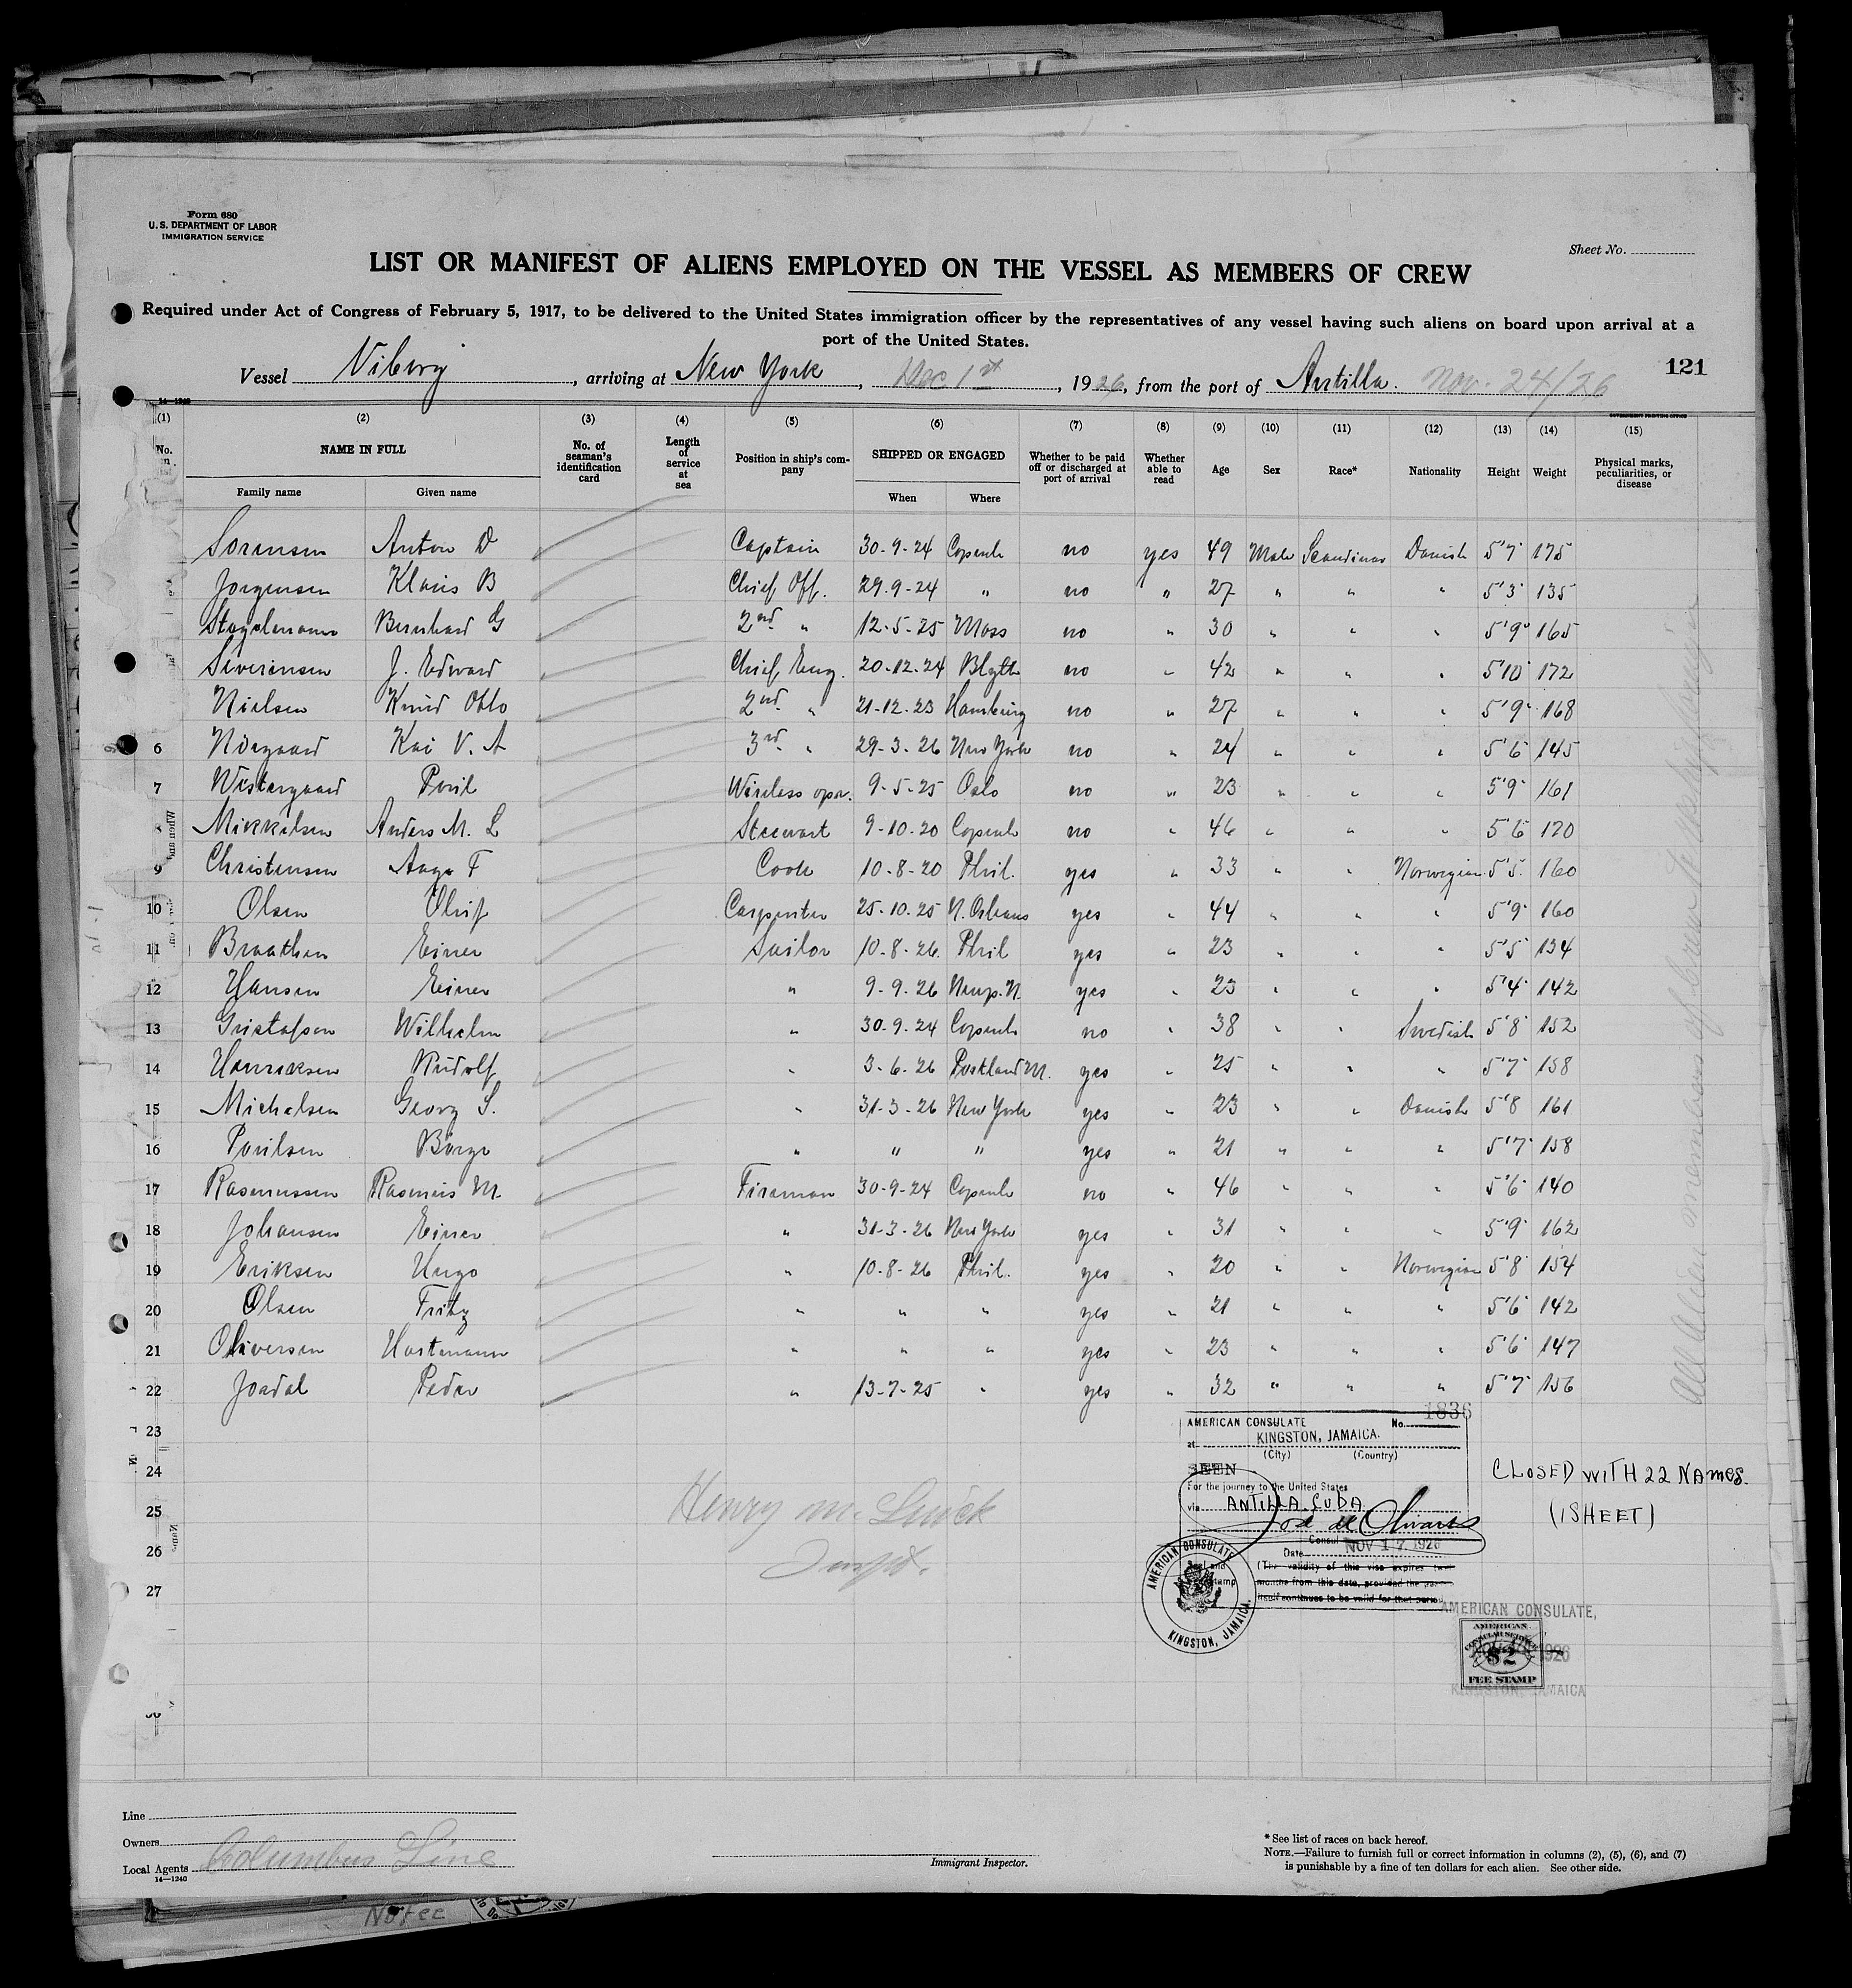 Form 680
U. S. DEPARTMENT OF LABOR
IMMIGRATION SERVICE
Sheet No.
LIST OR MANIFEST OF ALIENS EMPLOYED ON THE VESSEL AS MEMBERS OF CREW
Required under Act of Congress of February 5, 1917, to be delivered to the United States immigration officer by the representatives of any vessel having such aliens on board upon arrival at a
port of the United States.
121
Vessel Viborg, arriving at New York, Dec 1st, 1926, from the port of Antilla. Nov. 24/26
14—1240
GOVERNMENT PRINTING OFFICE
(1) (2) (3) (4) (5) (6) (7) (8) (9) (10) (11) (12) (13) (14) (15)
No. NAME IN FULL No. of seaman's identification card Length of service at sea Position in ship's company SHIPPED OR ENGAGED Whether to be paid off or discharged at port of arrival Whether able to read Age Sex Race* Nationality Height Weight Physical marks, peculiarities, or disease
Family name Given name When Where
Sorensen Anton D Captain 30-9-24 Copenh no yes 49 Male Scandinav Danish 5'7" 175
Jorgensen Klaus B Chief Off. 29.9-24 " no " 27 " " " 5'3" 135
Bernhard G 2nd " 12-5-25 Moss no " 30 " " " 5'9" 165
Siverinsen J. Edward Chief Eng. 20-12-24 Blyth no " 42 " " " 5'10" 172
Nielsen Knud Otto 2nd " 21-12-23 Hamburg no " 27 " " " 5'9" 168
6 Nørgaard Kai V. A 3rd " 29-3-26 New York no " 24 " " " 5'6" 145
7 Westergaard Poul Wireless oper. 9-5-25 Oslo no " 23 " " " 5'9" 161
8 Mikkelsen Anders M. L Steewart 9-10-20 Copenh no " 46 " " " 5'6" 170
9 Christensen Aage F Cook 10-8-20 Phil. yes " 33 " " Norwegian 5'5" 160
10 Olsen Oluf Carpenter 25-10-25 N. Orleans yes " 44 " " " 5'9" 160
11 Braathen Einer Sailor 10-8-26. Phil yes " 23 " " " 5'5" 134
12 Hansen Einer " 9-9-26 Newp. N. yes " 23 " " " 5'4" 142
13 Gustafson Wilhelm " 30-9-24 Copenh no " 38 " " Swedish 5'8" 152
14 Henriksen Rudolf " 3-6-26 Portland M. yes " 25 " " " 5'7" 158
15 Michelsen Georg S. " 31-3-26 New York yes " 23 " " Danish 5'8 161
16 Poulsen Børge " " " yes " 21 " " " 5'7" 158
17 Rasmussen Rasmus M. Fireman 30-9-24 Copenh no " 46 " " " 5'6" 140
18 Johansen Einer " 31-3-26 New York yes " 31 " " " 5'9" 162
19 Eriksen Hugo " 10-8-26 Phil. yes " 20 " " Norwegian 5'8" 154
20 Olsen Fritz " " " yes " 21 " " " 5'6" 142
21 Oliversen Hartmann " " " yes " 23 " " " 5'6" 147
22 Jordal Peder " 13-7-25 " yes " 32 " " " 5'7" 156
23
24
25
26
27
AMERICAN CONSULATE No. 1836
at KINGSTON, JAMAICA.
(City) (Country)
SEEN
For the journey to the United States
via ANTILLA CUBA
José de Olivares
Consul
Date NOV 17 1926
(The validity of this visa expires
months from this date, provided the
itself continues to be valid for that period
AMERICAN CONSULATE
KINGSTON, JAMAICA.
CLOSED WITH 22 NAMES.
(1 SHEET)
Henry M.
Inspt.
AMERICAN CONSULATE,
1926
KINGSTON, JAMAICA
AMERICAN
CONSULAR SERVICE
$2
FEE STAMP
Line
Owners
Local Agents Columbus Line
14—1240
Immigrant Inspector.
* See list of races on back hereof.
NOTE.—Failure to furnish full or correct information in columns (2), (5), (6), and (7)
is punishable by a fine of ten dollars for each alien. See other side.